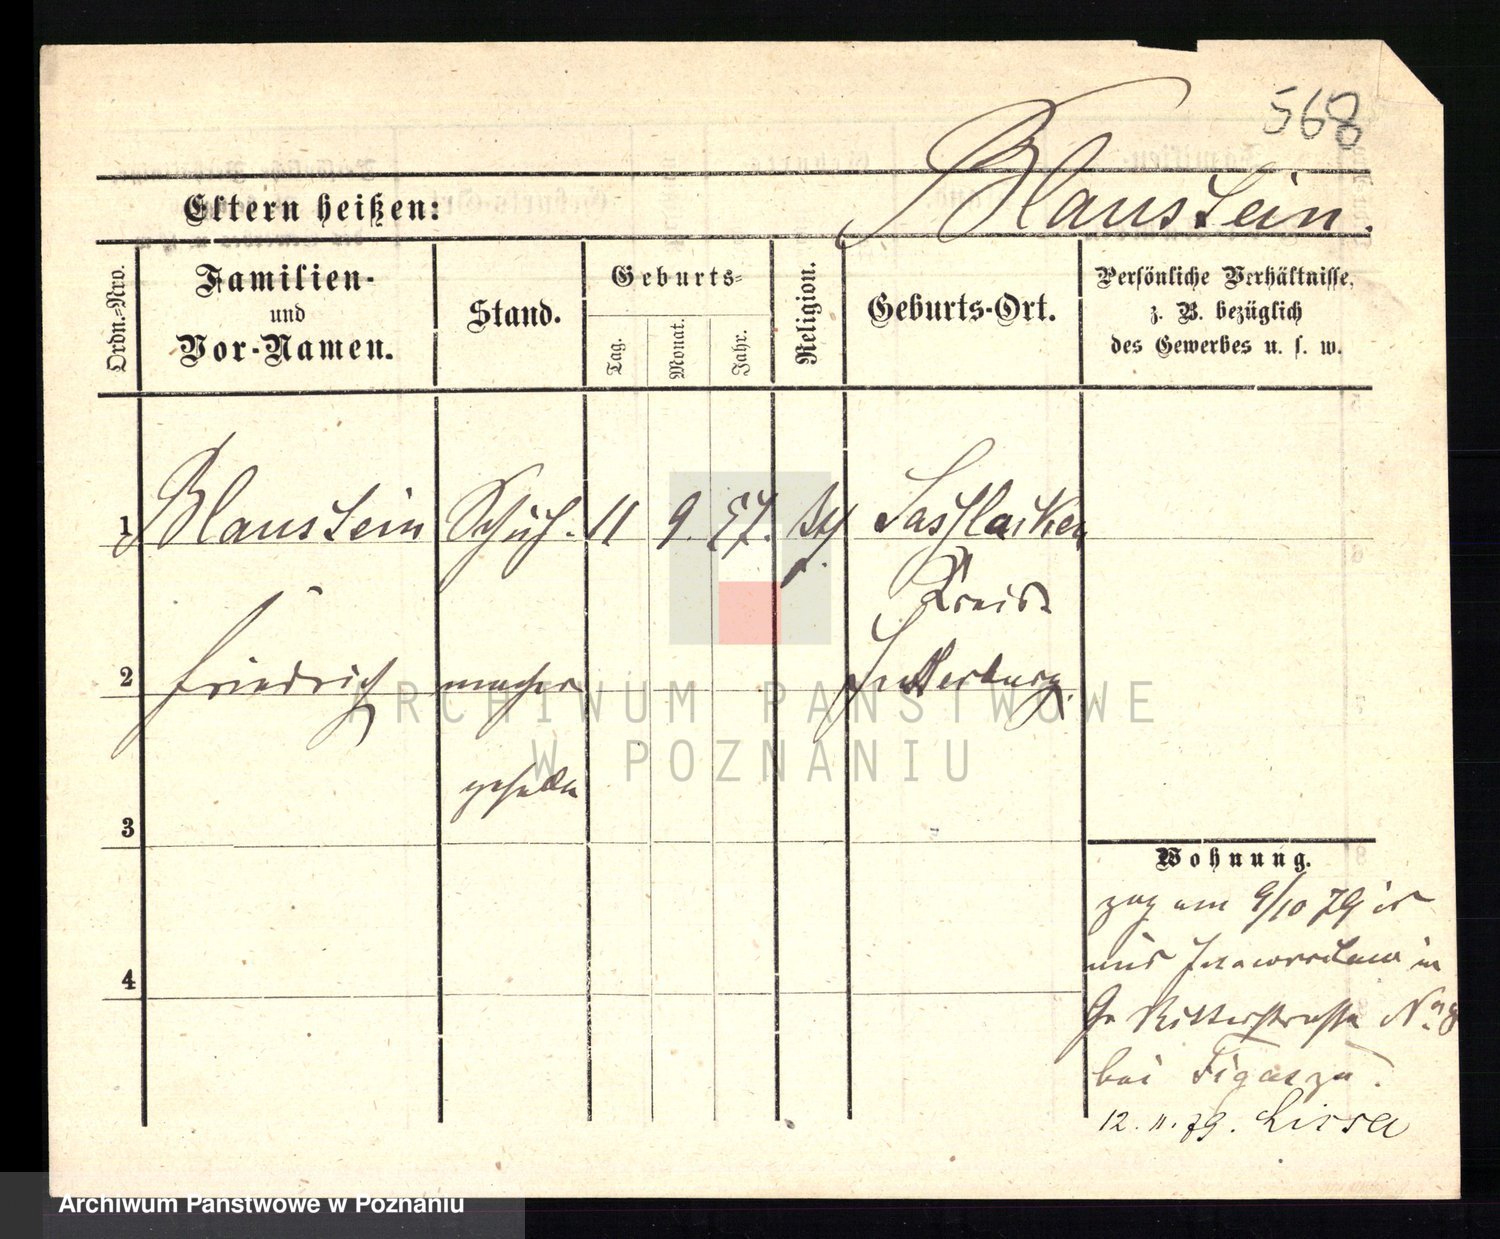 568
Blaustein.
Eltern heißen:
Ordn.-Nro.
Familien-
und
Vor-Namen.
Stand.
Geburts-
Tag.
Monat.
Jahr.
Religion.
Geburts-Ort.
Persönliche Verhältnisse,
z. B. bezüglich
des Gewerbes u. s. w.
1 Blaustein Schuh- 11 9. 57.
Kreis
2 Friedrich macher Insterburg.
geselle
3
4
Wohnung.
zog am 9/10 79
aus Inowraclaw in
Gr Ritterstrasse No
bei
12. 11. 79. Lissa
ARCHIWUM PAŃSTWOWE
W POZNANIU
Archiwum Państwowe w Poznaniu